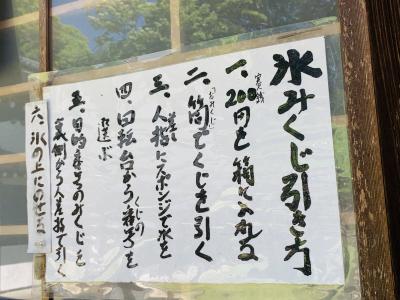 氷みくじ引き方
一、200円を箱に入れる
賽銭
二、筒でくじを引く
三、人指にスポンジで水を
差し
四、回転台から番号を
くじの
選ぶ
五、目的番号のみくじを
裏側から 引く
六、氷の上にのせる